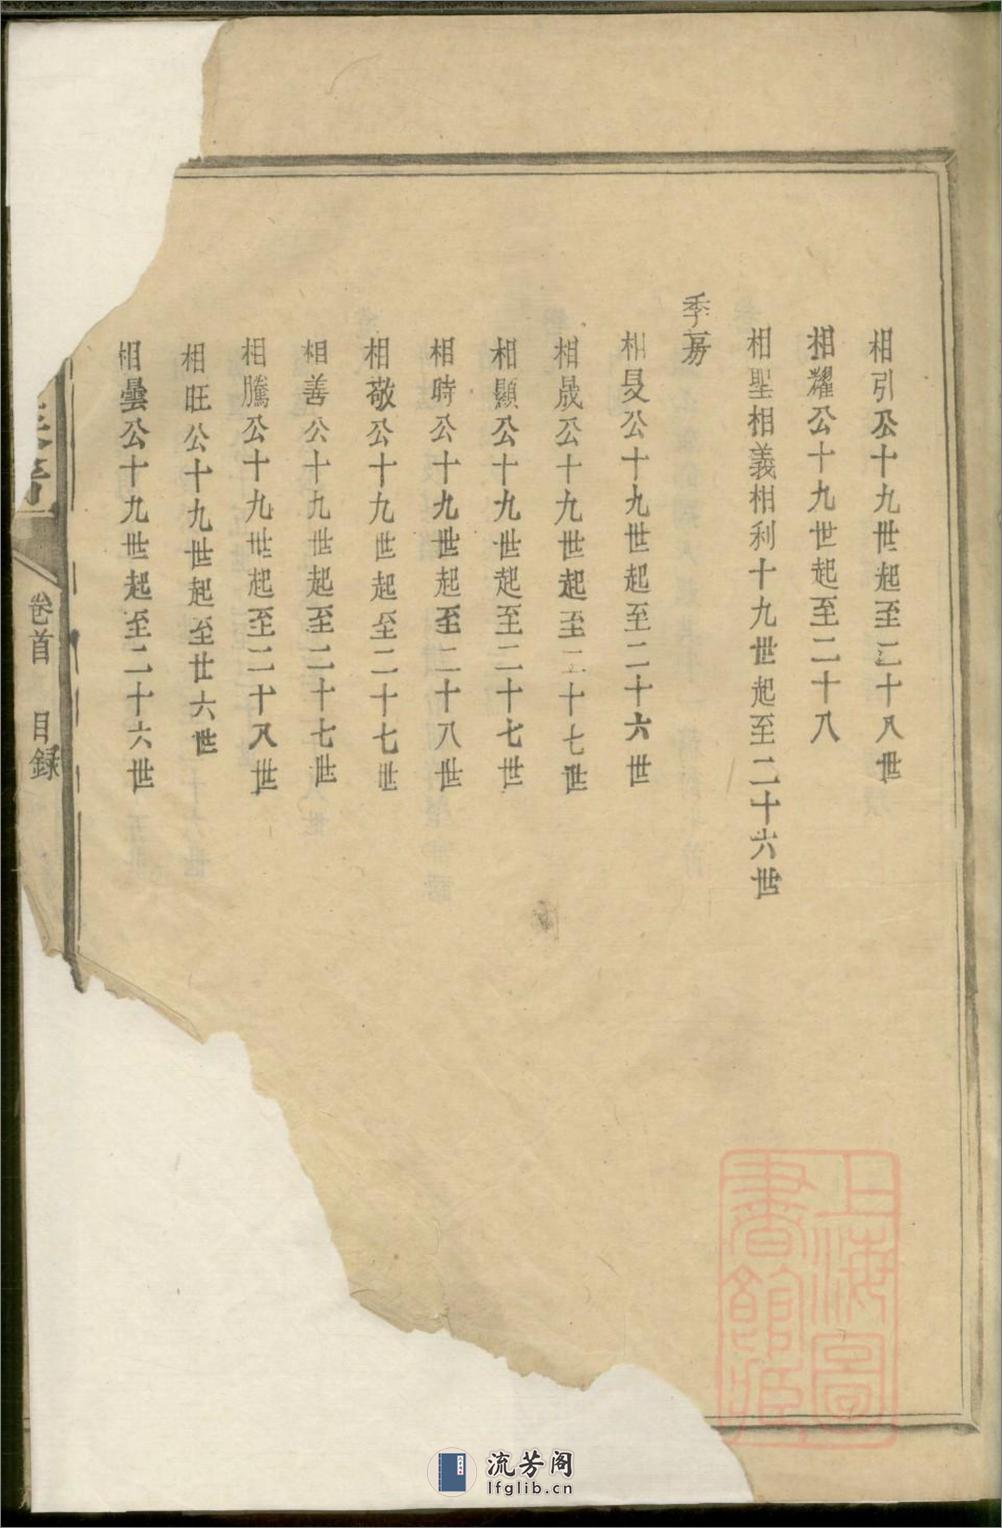 相引公十九世起至二十八世
相耀公十九世起至二十八
相聖相義相利十九世起至二十六世
季房
相旻公十九世起至二十六世
相晟公十九世起至二十七世
相顯公十九世起至二十七世
相時公十九世起至二十八世
相敬公十九世起至二十七世
相善公十九世起至二十七世
相騰公十九世起至二十八世
相旺公十九世起至廿六世
相曇公十九世起至二十六世
卷首 目録
上海圖
書館藏
流芳阁
lfglib.cn